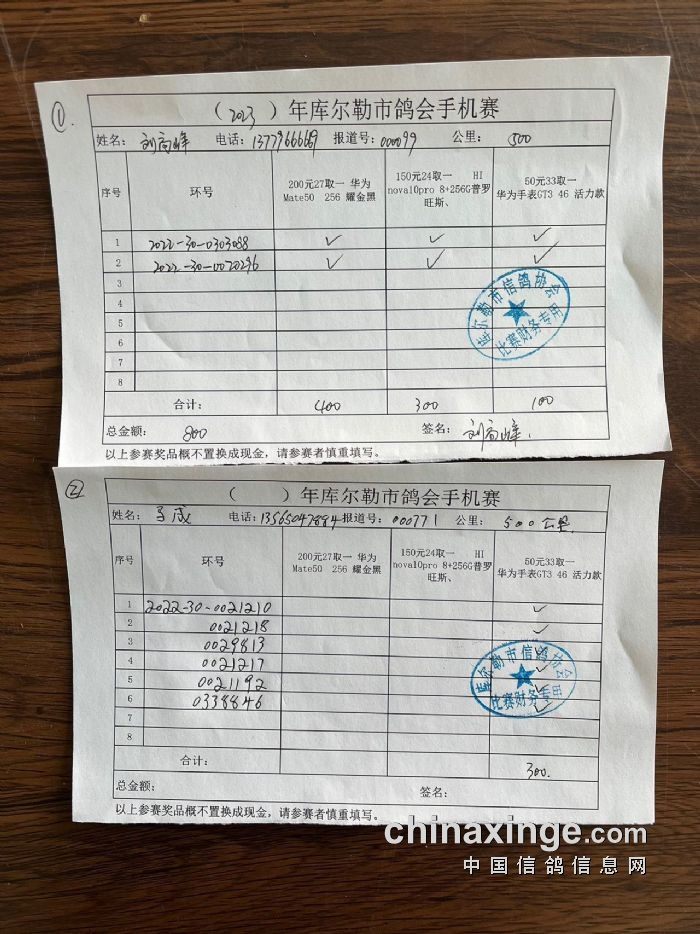 ①
(2023)年库尔勒市鸽会手机赛
姓名: 刘高峰 电话: 13779666669 报道号: 000099 公里: 500
序号 环号 200元27取一 华为Mate50 256 耀金黑 150元24取一 HI nova10pro 8+256G普罗旺斯、 50元33取一 华为手表GT3 46 活力款
1 2022-30-0303088 ✓ ✓ ✓
2 2022-30-0020296 ✓ ✓ ✓
3
4
5
6
7
8
库尔勒市信鸽协会
比赛财务专用
合计: 400 300 100
总金额: 800 签名: 刘高峰.
以上参赛奖品概不置换成现金，请参赛者慎重填写。
②
( )年库尔勒市鸽会手机赛
姓名: 电话: 13565047884 报道号: 000771 公里: 500公里
序号 环号 200元27取一 华为Mate50 256 耀金黑 150元24取一 HI nova10pro 8+256G普罗旺斯、 50元33取一 华为手表GT3 46 活力款
1 2022-30-0021210 ✓
2 0021218 ✓
3 0029813 ✓
4 0021217 ✓
5 0021192 ✓
6 0338846 ✓
7
8
库尔勒市信鸽协会
比赛财务专用
合计: 300.
总金额: 签名:
以上参赛奖品概不置换成现金，请参赛者慎重填写。
chinaxinge.com
中国信鸽信息网